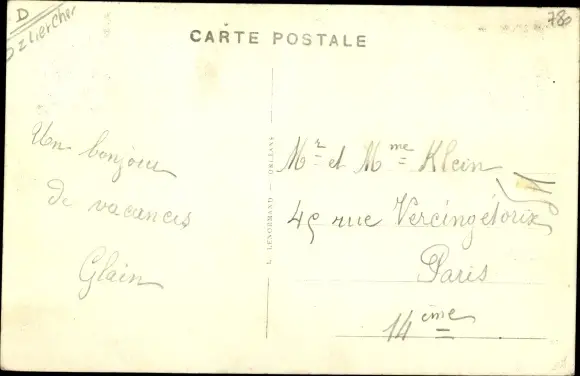 D
780
CARTE POSTALE
Un bonjour
de vacances
Glain
L. LENORMAND — ORLÉANS
Mr et Mme Klein
45 rue Vercingétorix
Paris
14ème